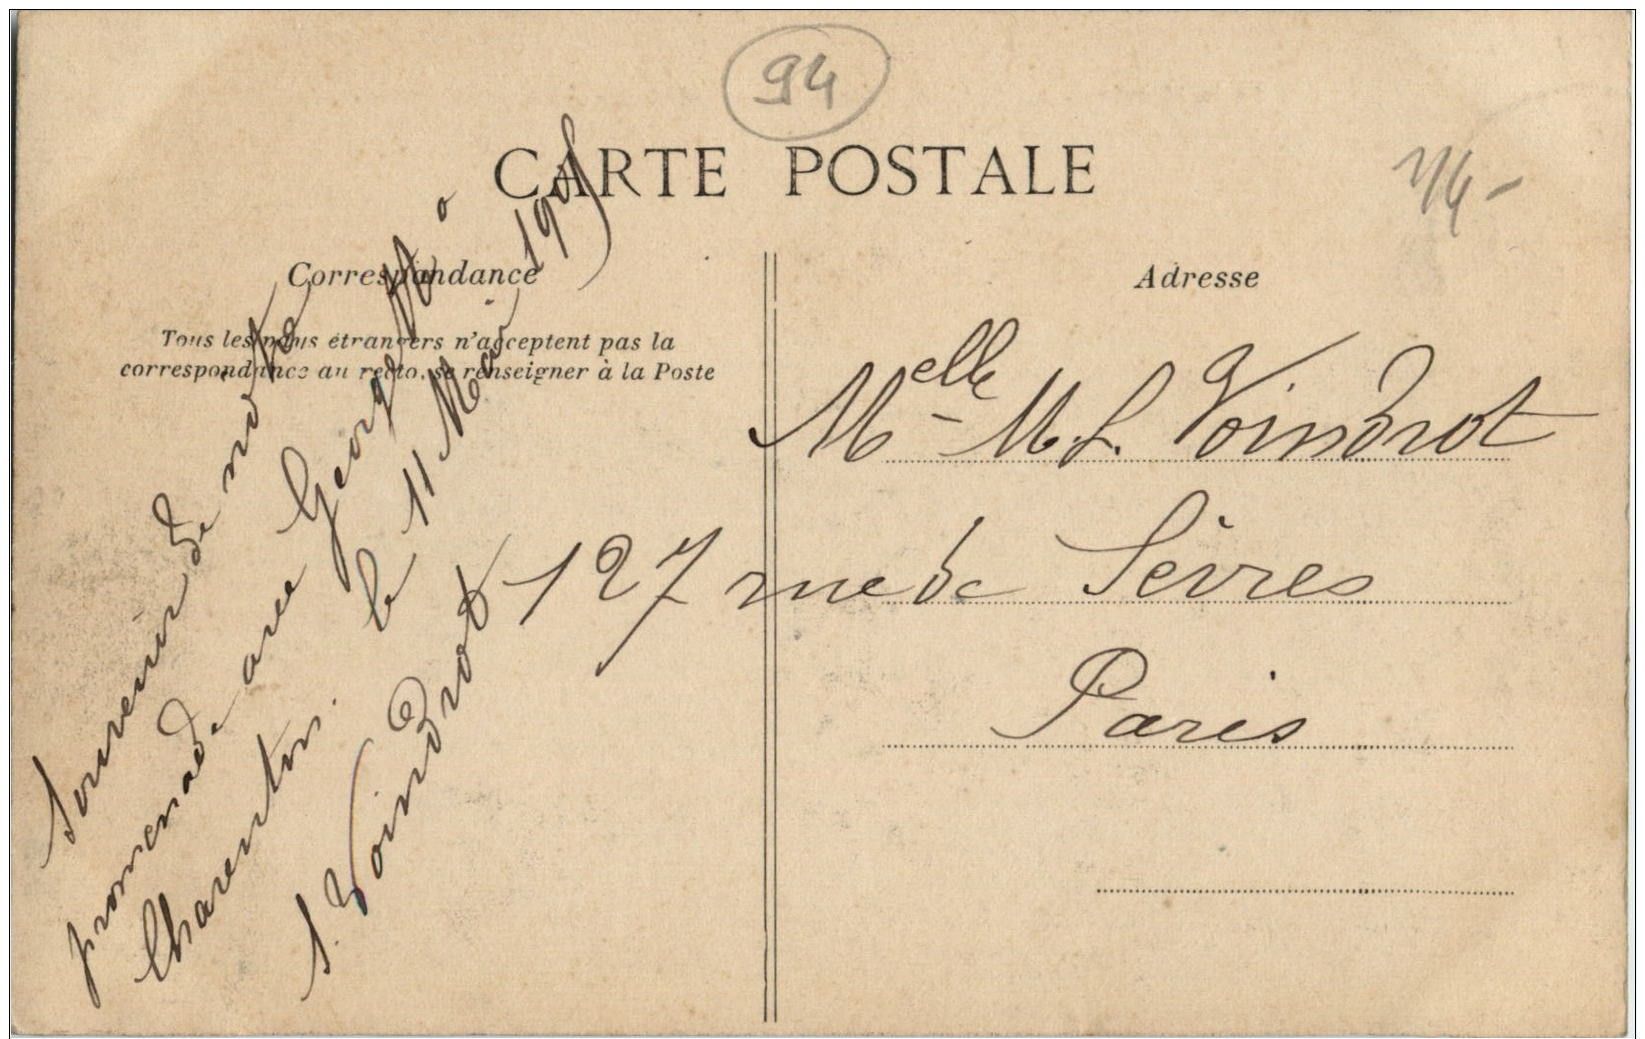 94
CARTE POSTALE
Correspondance
Tous les pays étrangers n'acceptent pas la
correspondance au recto, se renseigner à la Poste
Souvenir de notre
promenade avec Georges à
Charenton. le 11 Mai 1905
S. Voindrot
Adresse
Melle M. L. Voindrot
127 rue de Sèvres
Paris